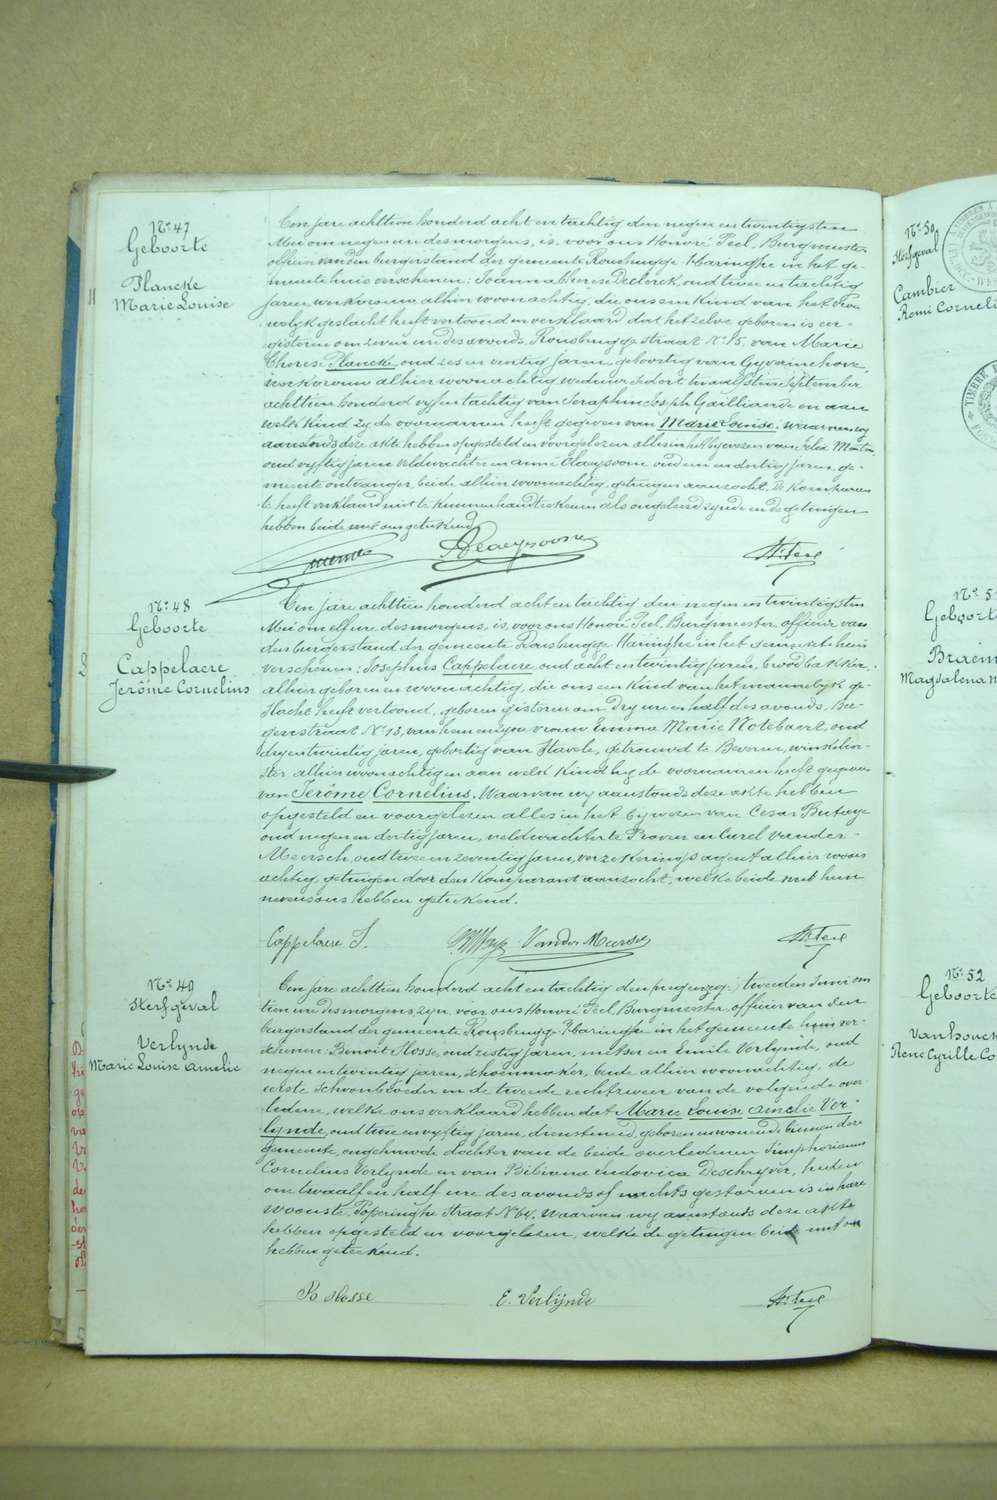 Nr 47
Geboorte
Plancke
Marie Louise
Ten jare achttien honderd acht en tachtig den negen en twintigsten
Mei om negen ure des morgens, is, voor ons Honoré Peel, Burgmeester
officier van den burgerstand der gemeente Rousbrugge-Haringhe in het ge-
meentehuis verschenen: Joanna Theresia Declerck, oud twee en tachtig
jaren, werkvrouw, alhier woonachtig, die ons een kind van het vrou-
welyk geslacht heeft vertoond en verklaard dat hetzelve geboren is ei-
gisteren om zeven ure des avonds, Rousbrugge straat Nr 15, van Marie
Therese Plancke, oud zes en veertig jaren, geboortig van Gyverinchove,
werkvrouw alhier woonachtig, weduwe sedert september
achttien honderd vyf en tachtig van Seraphin Joseph Gailliaerde en aan
welk kind zy de voornamen heeft gegeven van Marie Louise. Waarvan wy
aanstonds deze akte hebben opgesteld en voorgelezen alles in het bywezen van Felix
oud vyftig jaren veldwachter en Aimé Claeysoone oud een en dertig jaren, ge-
meente ontvanger, beide alhier woonachtig, getuigen aanzocht. De komparan-
te heeft verklaard niet te kunnen handteekenen als ongeleerd zynde en de getuigen
hebben beide met ons geteekend
A Claeysoone
H. Peel
Nr 48
Geboorte
Cappelaere
Jerôme Cornelius
Ten jare achttien honderd acht en tachtig den negen en twintigsten
Mei om elf ure des morgens, is, voor ons Honoré Peel, Burgmeester, officier van
den burgerstand der gemeente Rousbrugge Haringhe in het gemeentehuis
verschenen: Josephus Cappelaere oud acht en twintig jaren, broodbakker,
alhier geboren en woonachtig, die ons een kind van het mannelyk ge-
slacht heeft vertoond, geboren gisteren om dry ure en half des avonds, Ber-
genstraat Nr 13, van hem en zyne vrouw Emma Marie Notebaert, oud
dry en twintig jaren, geboortig van Stavele, getrouwd te Beveren, winkelier-
ster alhier woonachtig en aan welk kind hy de voornamen heeft gegeven
van Jerôme Cornelius. Waarvan wy aanstonds deze akte hebben
opgesteld en voorgelezen alles in het bywezen van Cesar Butaye
oud negen en dertig jaren, veldwachter te Proven en Carel Vander-
Meersch, oud twee en zeventig jaren, verzekerings agent alhier woon-
achtig, getuigen door den komparant aanzocht, welke beide met hem
nevens ons hebben geteekend.
Cappelaere J.
Vander Meersch
H. Peel
Nr 49
Sterfgeval
Verlynde
Marie Louise Amelie
Ten jare achttien honderd acht en tachtig den tweeden Juni om
tien ure des morgens zyn, voor ons Honoré Peel Burgmeester, officier van den
burgerstand der gemeente Rousbrugge-Haringhe in het gemeentehuis ver-
schenen: Benoit Hosse, oud zestig jaren, metser en Emile Verlynde, oud
negen en twintig jaren, schoenmaker, beide alhier woonachtig, de
eerste schoonbroeder en de tweede rechtzweer van de volgende over-
ledene, welke ons verklaard hebben dat Marie Louise Amelie Ver-
lynde, oud twee en vyftig jaren, dienstmeid, geboren en wonende binnen deze
gemeente, ongehuwde dochter van de beide overledenen Simphorianus
Cornelius Verlynde en van Bibiana Ludovica Deschryver, heden
om twaalf en half ure des avonds of nachts gestorven is in hare
woonste Poperinghe Straat Nr 64. Waarvan wy aanstonds deze akte
hebben opgesteld en voorgelezen, welke de getuigen beide met ons
hebben geteekend.
B Hosse
E. Verlijnde
H. Peel
Nr 50
Sterfgeval
Cambier
Remi Corneli
TIMBRE
Nr 5
Geboorte
Magdalena M
Nr 52
Geboorte
Vanhouck
René Cyrille Co